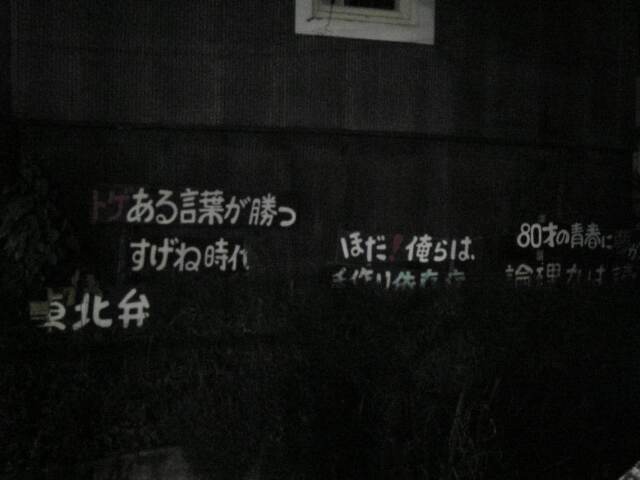 トゲある言葉が勝つ
すげね時代
東北弁
ほだ!俺らは、
手作り依存症
80才の青春に
論理力は